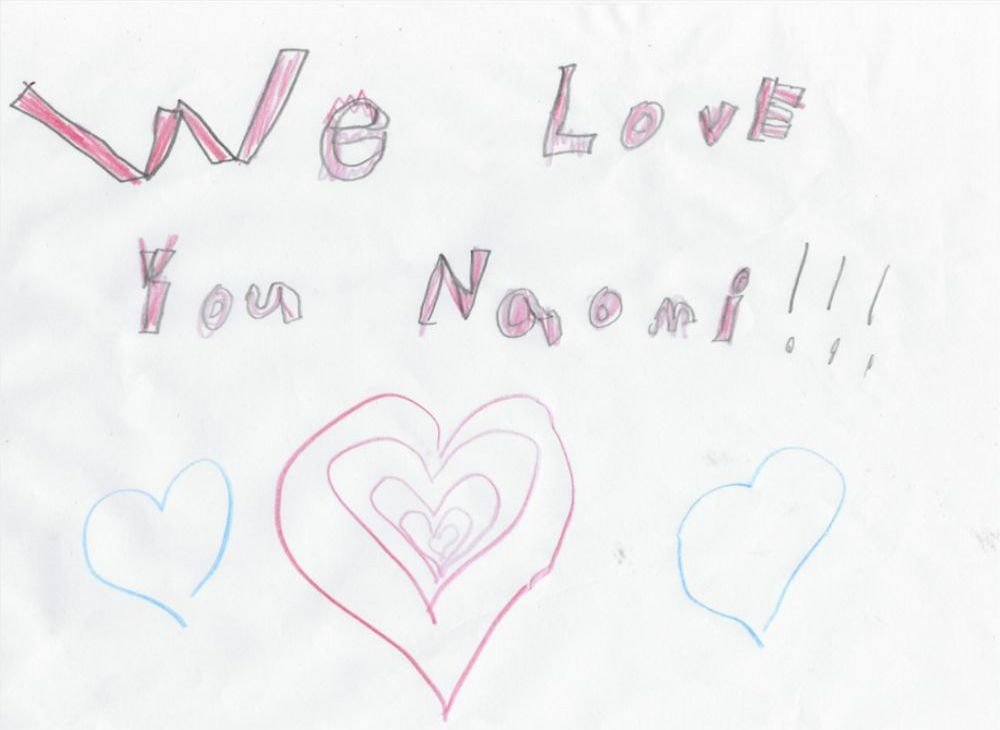 We LovE
You Naomi!!!